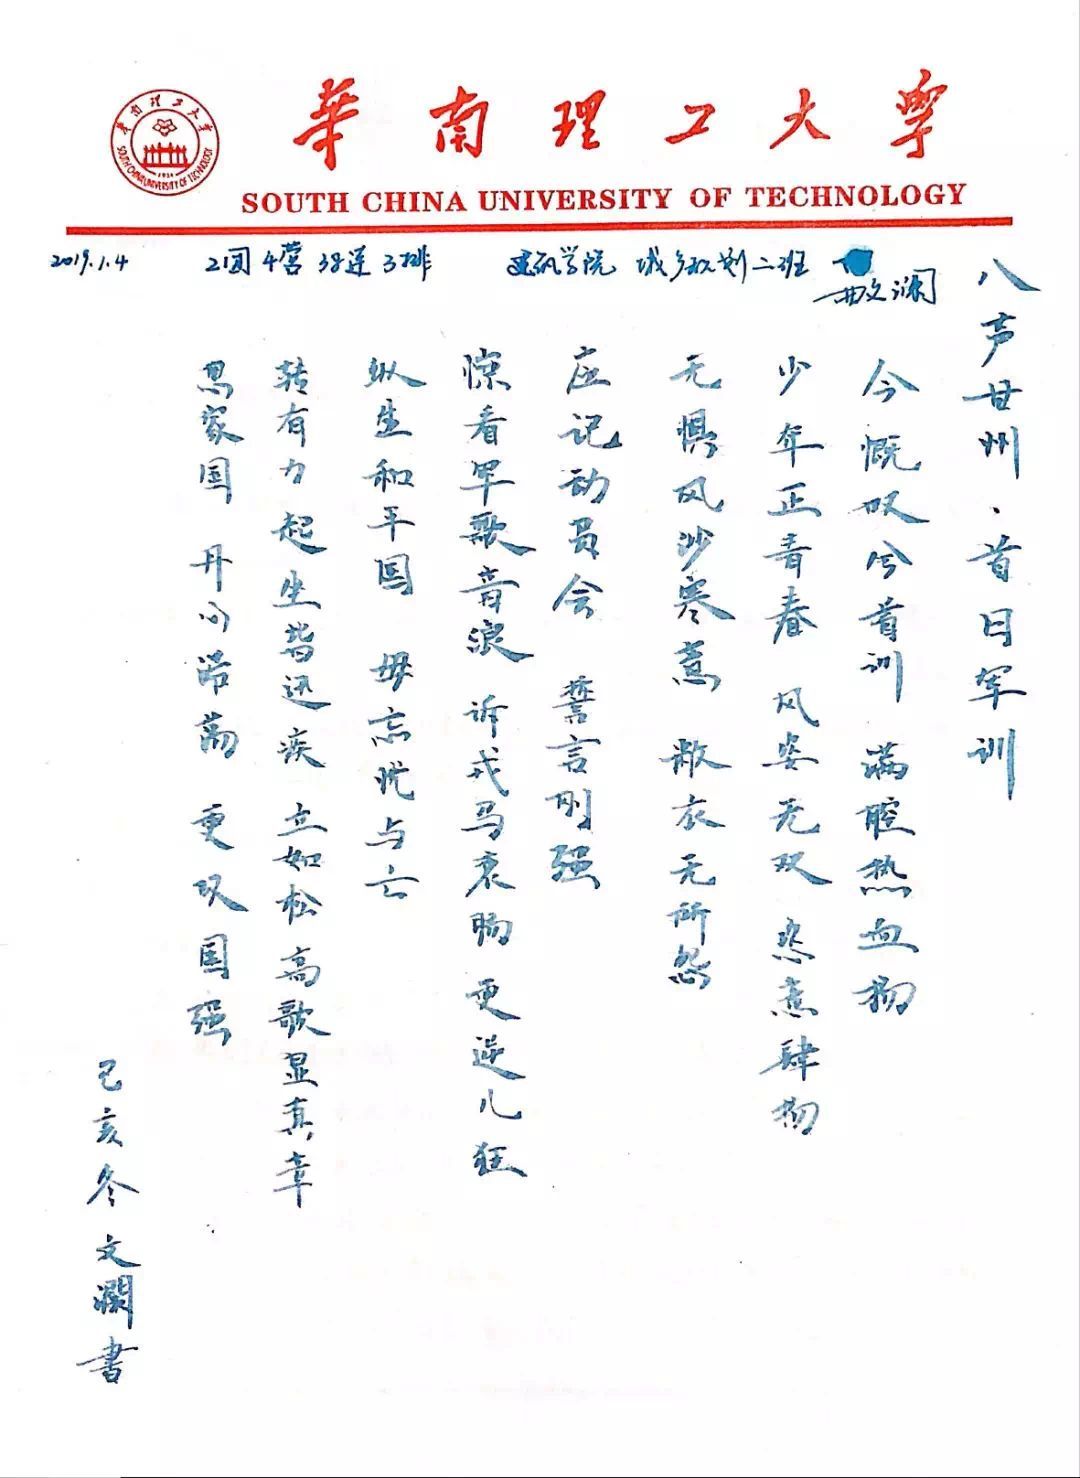 華南理工大學
SOUTH CHINA UNIVERSITY OF TECHNOLOGY
華南理工大學
SOUTH CHINA UNIVERSITY OF TECHNOLOGY
1934
2019.1.4 2团4营38连3排 建筑学院 城乡规划二班 文澜
八声甘州·首日军训
今慨叹兮首训 满腔热血扬
少年正青春 风姿无双 恣意肆扬
无惧风沙寒意 敝衣无所怨
应记动员会 誓言刚强
惊看军歌音浪 诉戎马衷肠 更逆儿狂
纵生和平国 毋忘忧与亡
转有力起坐皆迅疾 立如松高歌显真章
思家国 丹心浩荡 更叹国强
己亥冬 文瀾書